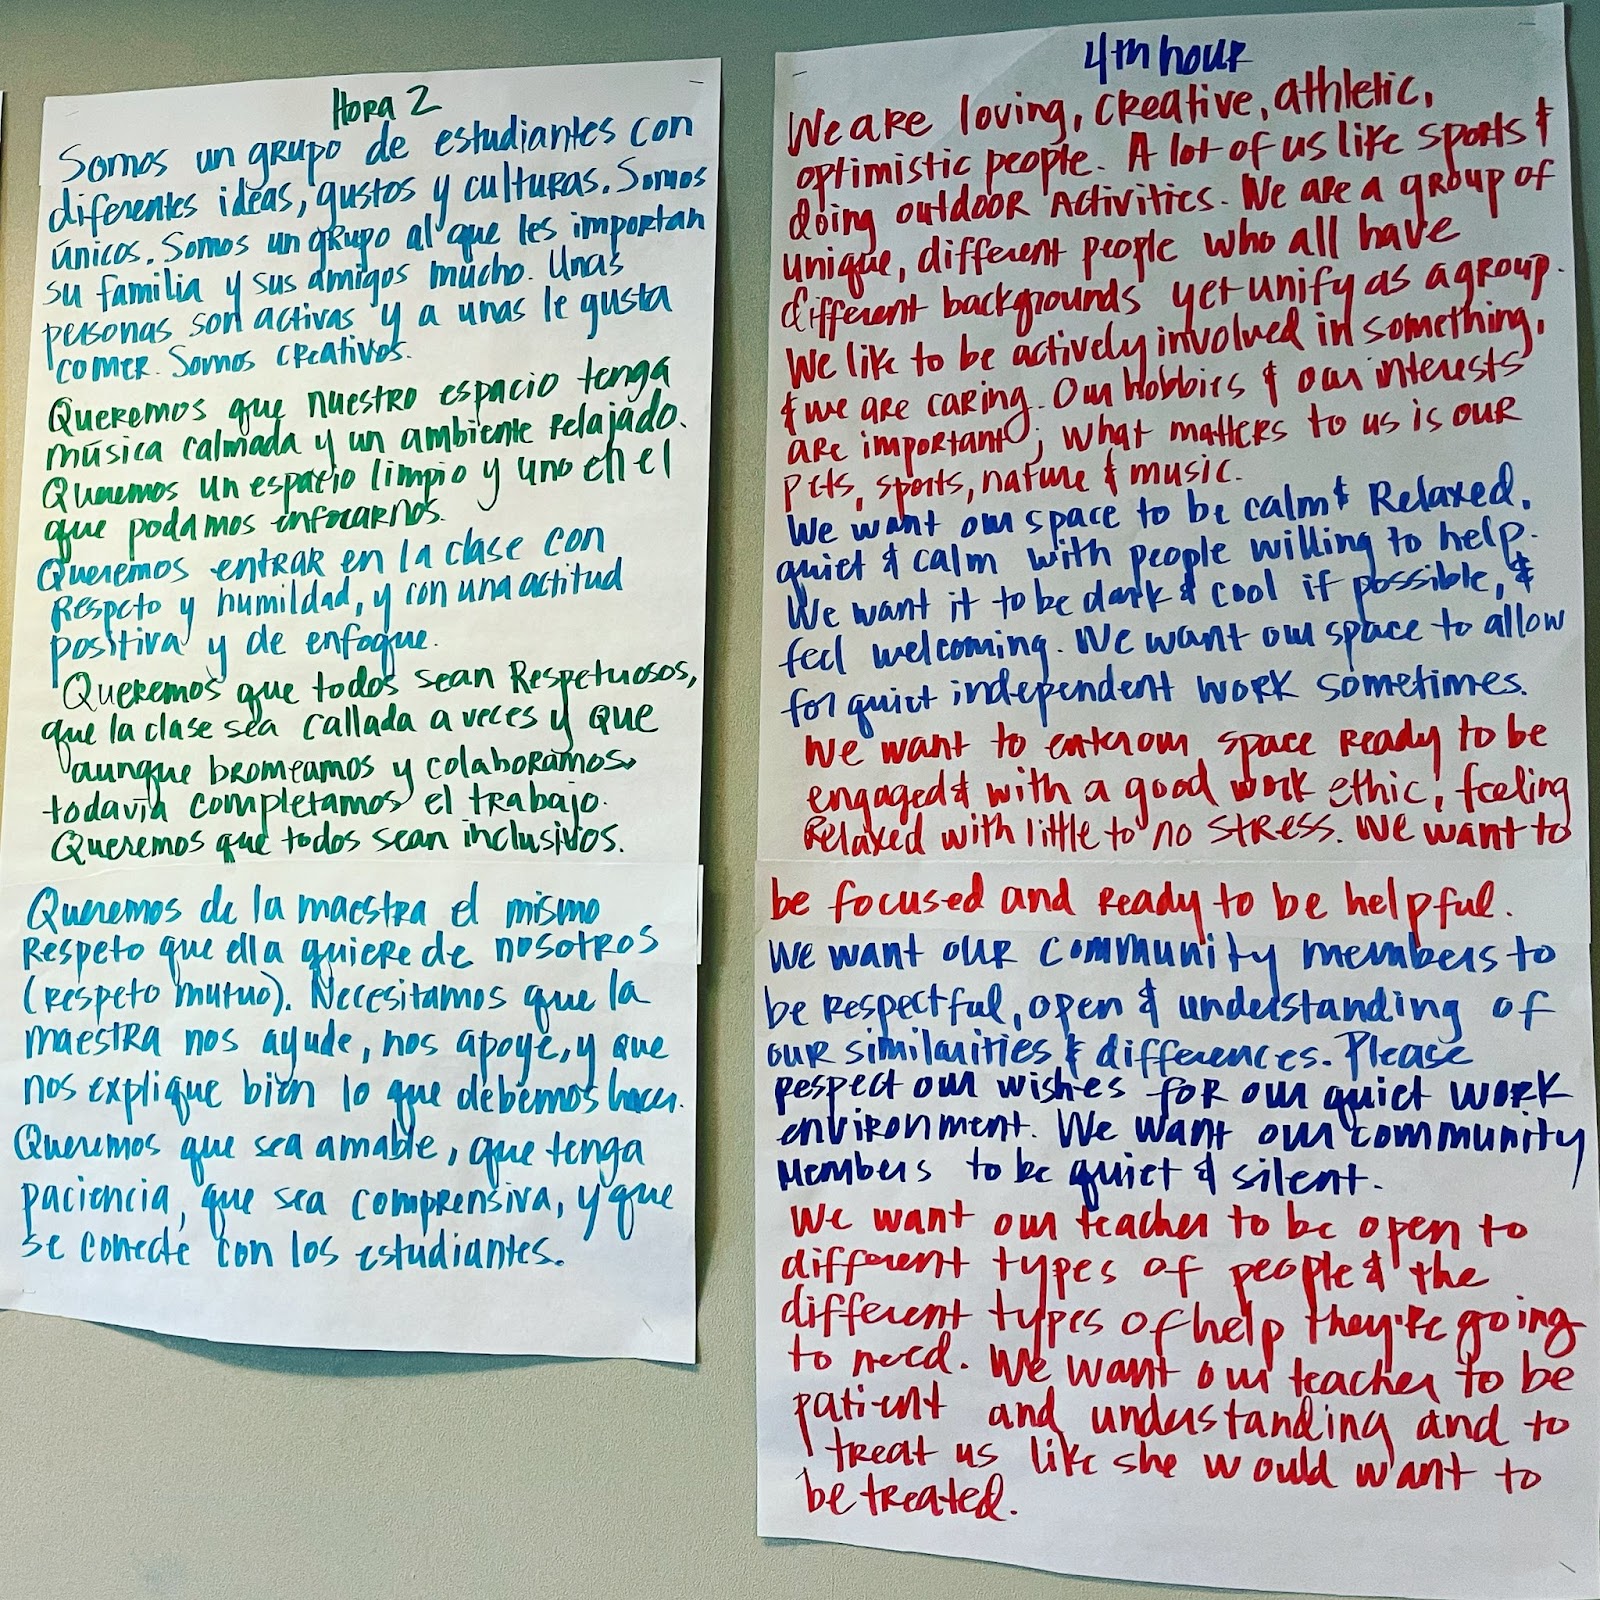 Hora 2
Somos un grupo de estudiantes con
diferentes ideas, gustos y culturas. Somos
únicos. Somos un grupo al que les importan
su familia y sus amigos mucho. Unas
personas son activas y a unas le gusta
comer. Somos creativos.
Queremos que nuestro espacio tenga
música calmada y un ambiente relajado.
Queremos un espacio limpio y uno en el
que podamos enfocarnos.
Queremos entrar en la clase con
respeto y humildad, y con una actitud
positiva y de enfoque.
Queremos que todos sean respetuosos,
que la clase sea callada a veces y que
aunque bromeamos y colaboramos,
todavía completamos el trabajo.
Queremos que todos sean inclusivos.
Queremos de la maestra el mismo
respeto que ella quiere de nosotros
(respeto mutuo). Necesitamos que la
maestra nos ayude, nos apoye, y que
nos explique bien lo que debemos hacer.
Queremos que sea amable, que tenga
paciencia, que sea comprensiva, y que
se conecte con los estudiantes.
4th hour
We are loving, creative, athletic,
optimistic people. A lot of us like sports &
doing outdoor activities. We are a group of
unique, different people who all have
different backgrounds yet unify as a group.
We like to be actively involved in something,
& we are caring. Our hobbies & our interests
are important; what matters to us is our
pets, sports, nature & music.
We want our space to be calm & relaxed.
quiet & calm with people willing to help.
We want it to be dark & cool if possible, &
feel welcoming. We want our space to allow
for quiet independent work sometimes.
We want to enter our space ready to be
engaged & with a good work ethic, feeling
relaxed with little to no stress. We want to
be focused and ready to be helpful.
We want our community members to
be respectful, open & understanding of
our similarities & differences. Please
respect our wishes for our quiet work
environment. We want our community
members to be quiet & silent.
We want our teacher to be open to
different types of people & the
different types of help they're going
to need. We want our teacher to be
patient and understanding and to
treat us like she would want to
be treated.